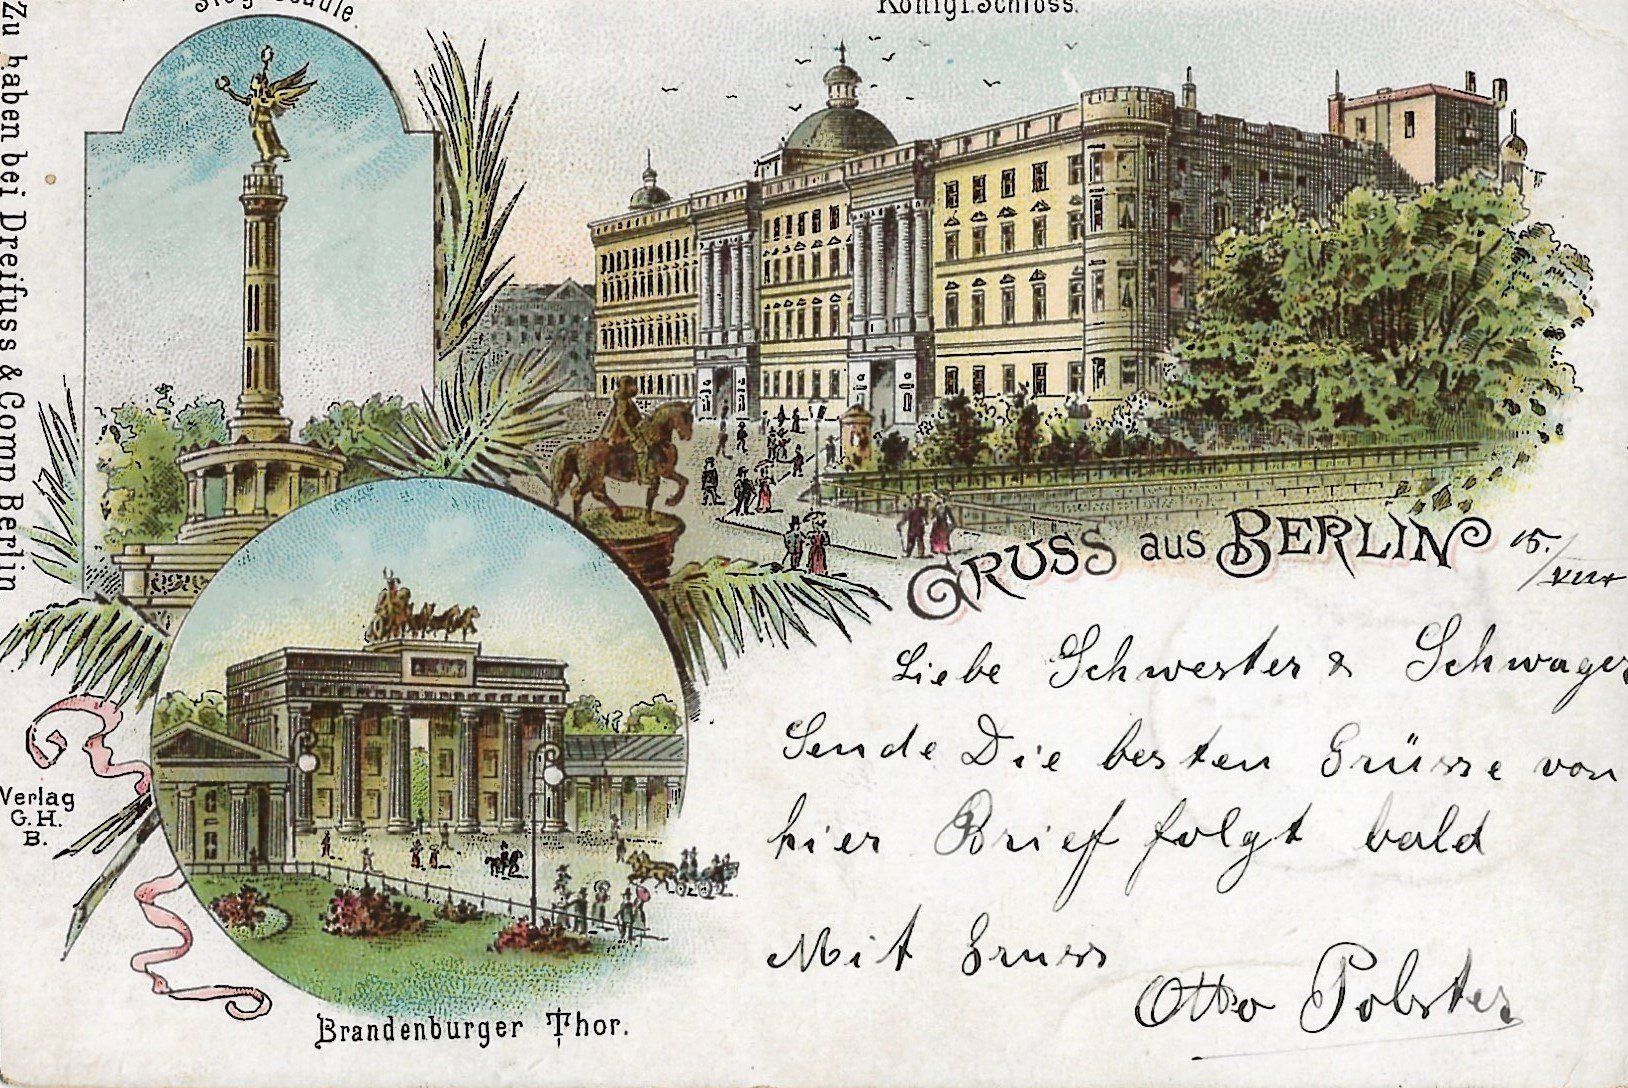 Siegessäule.
Königl. Schloss.
Zu haben bei Dreifuss & Comp. Berlin
GRUSS aus BERLIN
15./VIII
Liebe Schwester & Schwager
Sende Die besten Grüsse von
hier Brief folgt bald
Mit Gruss
Otto Polster
Verlag
G. H.
B.
Brandenburger Thor.